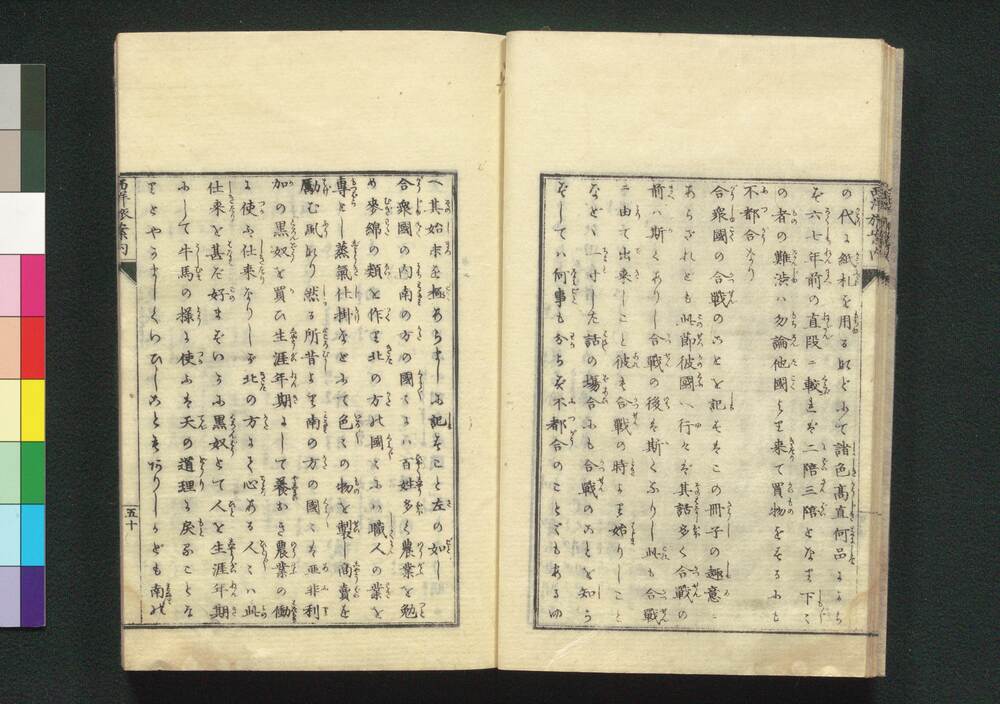 の代に紙札を用る抔にて諸色高直何品によら
ず六七年前の直段ニ較れば二陪三陪となり下々
の者の難渋ハ勿論他國より来て買物をするにも
不都合なり
合衆國の合戦のことを記すはこの冊子の趣意ニ
あらざれとも此節彼國へ行けば其話多く合戦の
前ハ斯くありし合戦の後は斯くなりし此も合戦
ニ由て出来しこと彼も合戦の時より始りしこと
などゝ一寸した話の場合にも合戦のことを知ら
ずしてハ何事も分らず不都合のこともあるゆ
西洋旅案内
へ其始末を極あらましに記すこと左の如し
合衆國の内南の方の國々にハ百姓多く農業を勉
め麥綿の類を作り北の方の國々にハ職人の業を
専とし蒸氣仕掛などにて色々の物を製し商賣を
勵む風なり然る所昔より南の方の國々は亜非利
加の黒奴を買ひ生涯年期にして養おき農業の働
に使ふ仕来なりしが北の方にて心ある人々ハ此
仕来を甚だ好まずいかに黒奴とて人を生涯年期
にして牛馬の様に使ふは天の道理に戻ることな
りとやかましくいひしことも
ありしかども南の
西洋旅案内
五十